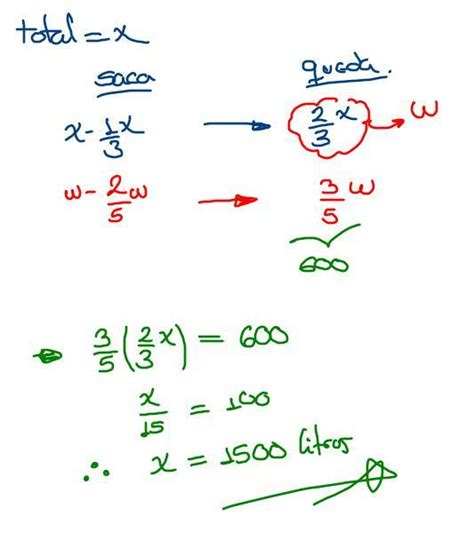 total = x
saca queda.
x - 1/3 x → 2/3 x → w
w - 2/5 w → 3/5 w
600
3/5 (2/3 x) = 600
x/15 = 100
∴ x = 1500 litros